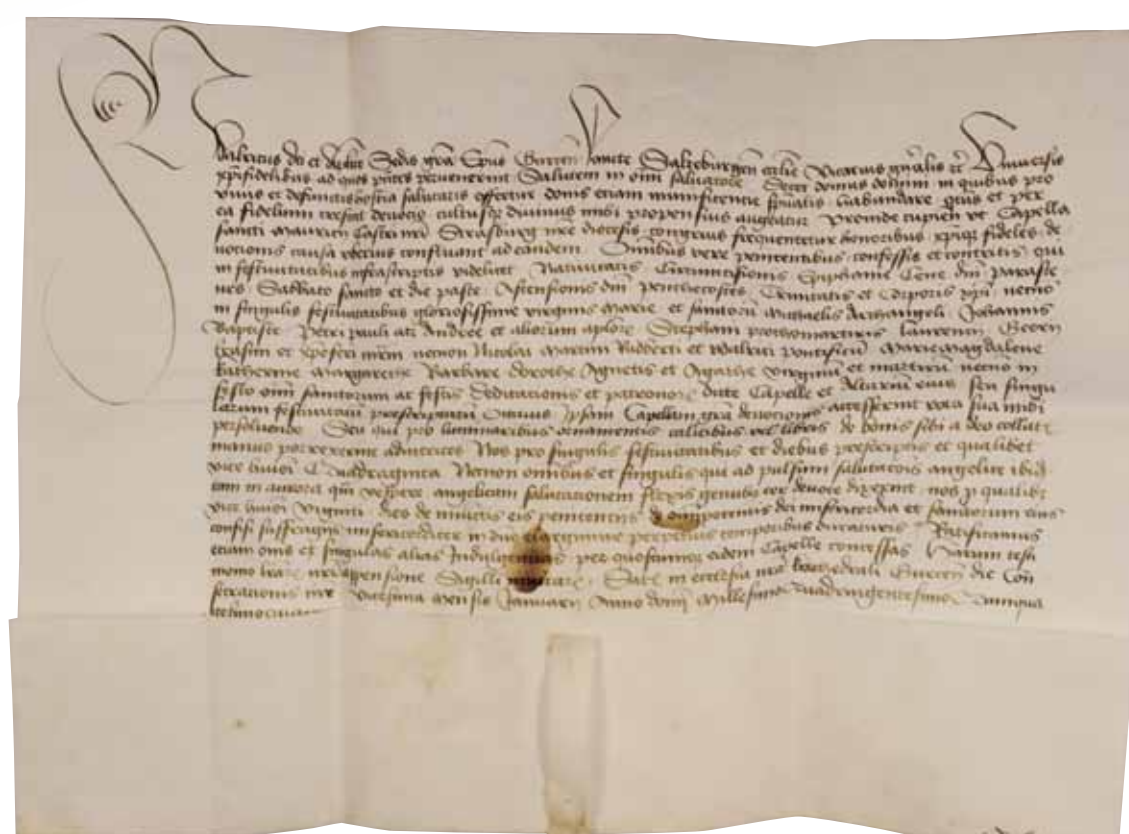 Udalricus dei et aplice Sedis gra Epus Gurcen Sancte Salzeburgen ecclie Vicarius gnalis etc Universis
xpifidelibus ad quos pntes pervenerint Salutem in omi salvatore Decet domus domini in quibus pro
vivis et defunctis hostia salutaris offertur donis etiam munificentie spualis habundare quibus et per
ea fidelium crescat devocio cultusque divinus inibi propensius augeatur Proinde cupientes ut Capella
sancti Mauricii Castri nri Strasburg nre diocesis congruis frequentetur honoribus xpique fideles de
vocionis causa uberius confluant ad eandem Omnibus vere penitentibus confessis et contritis qui
in festivitatibus infrascriptis videlicet Nativitatis Circumcisionis Epiphanie Cene dni parasce
ves Sabbato sancto et die pasce Ascensionis dni penthecostes Trinitatis et Corporis xpi necnon
in singulis festivitatibus gloriosissime virginis Marie et sanctorum Michaelis Archangeli Johannis
Baptiste Petri pauli atque Andree et aliorum aplorum Stephani prothomartiris laurencii Georii
Erasmi et xpofori mrm necnon Nicolai Martini Rudberti et Udalrici pontificum Marie magdalene
katherine Margarethe Barbare dorothe Agnetis et Agathe virginum et martirum necnon in
festo omi sanctorum ac festis dedicationis et patronorum dicte Capelle et Altarium eius seu singu
larum festivitatum prescriptarum Octavis Ipsam Capellam gra devocionis accesserint vota sua inibi
persolvendo Seu qui pro luminaribus ornamentis calicibus vel libris de bonis sibi a deo collatis
manus porrexerint adiutrices Nos pro singulis festivitatibus et diebus prescriptis et qualibet
vice huiusmodi Quadraginta Necnon omnibus et singulis qui ad pulsum salutacionis angelice ibidem
tam in aurora quam vespere angelicam salutationem flexis genubus devote dixerint nos pro qualibet
vice huiusmodi Viginti dies de iniunctis eis penitenciis de omnipotentis dei misericordia et sanctorum eius
confisi suffragiis misericorditer in dno elargimur perpetuis temporibus duraturis Ratificamus
etiam omnes et singulas alias Indulgentias per quoscumque eidem Capelle concessas Harum testi
monio litterarum nri appensione Sigilli Datum in ecclesia nra kathedrali Gurcen die Con
secrationis nre Vicesima Mensis Januarii Anno domini Millesimo Quadringentesimo Quinqua